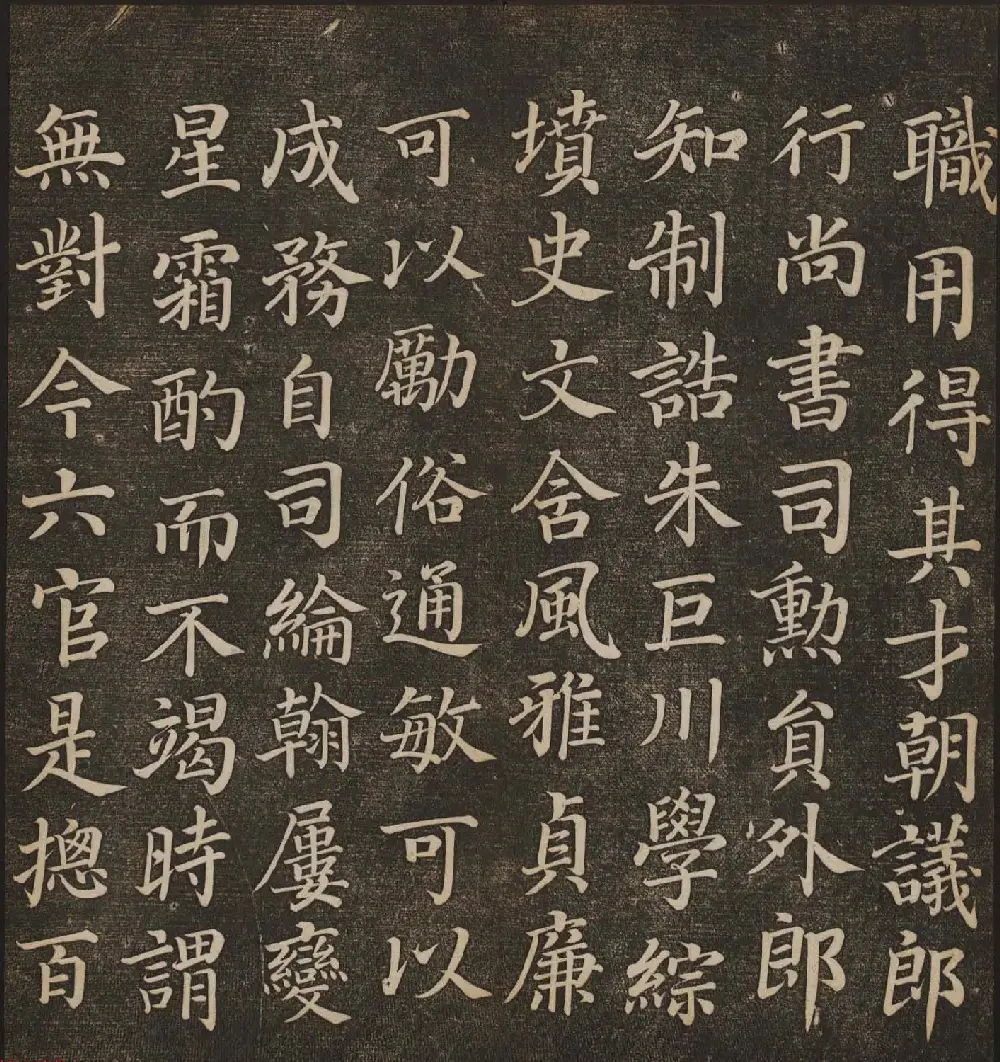 職用得其才朝議郎
行尚書司勳員外郎
知制誥朱巨川學綜
墳史文含風雅貞廉
可以勵俗通敏可以
成務自司綸翰屢變
星霜酌而不竭時謂
無對今六官是摠百